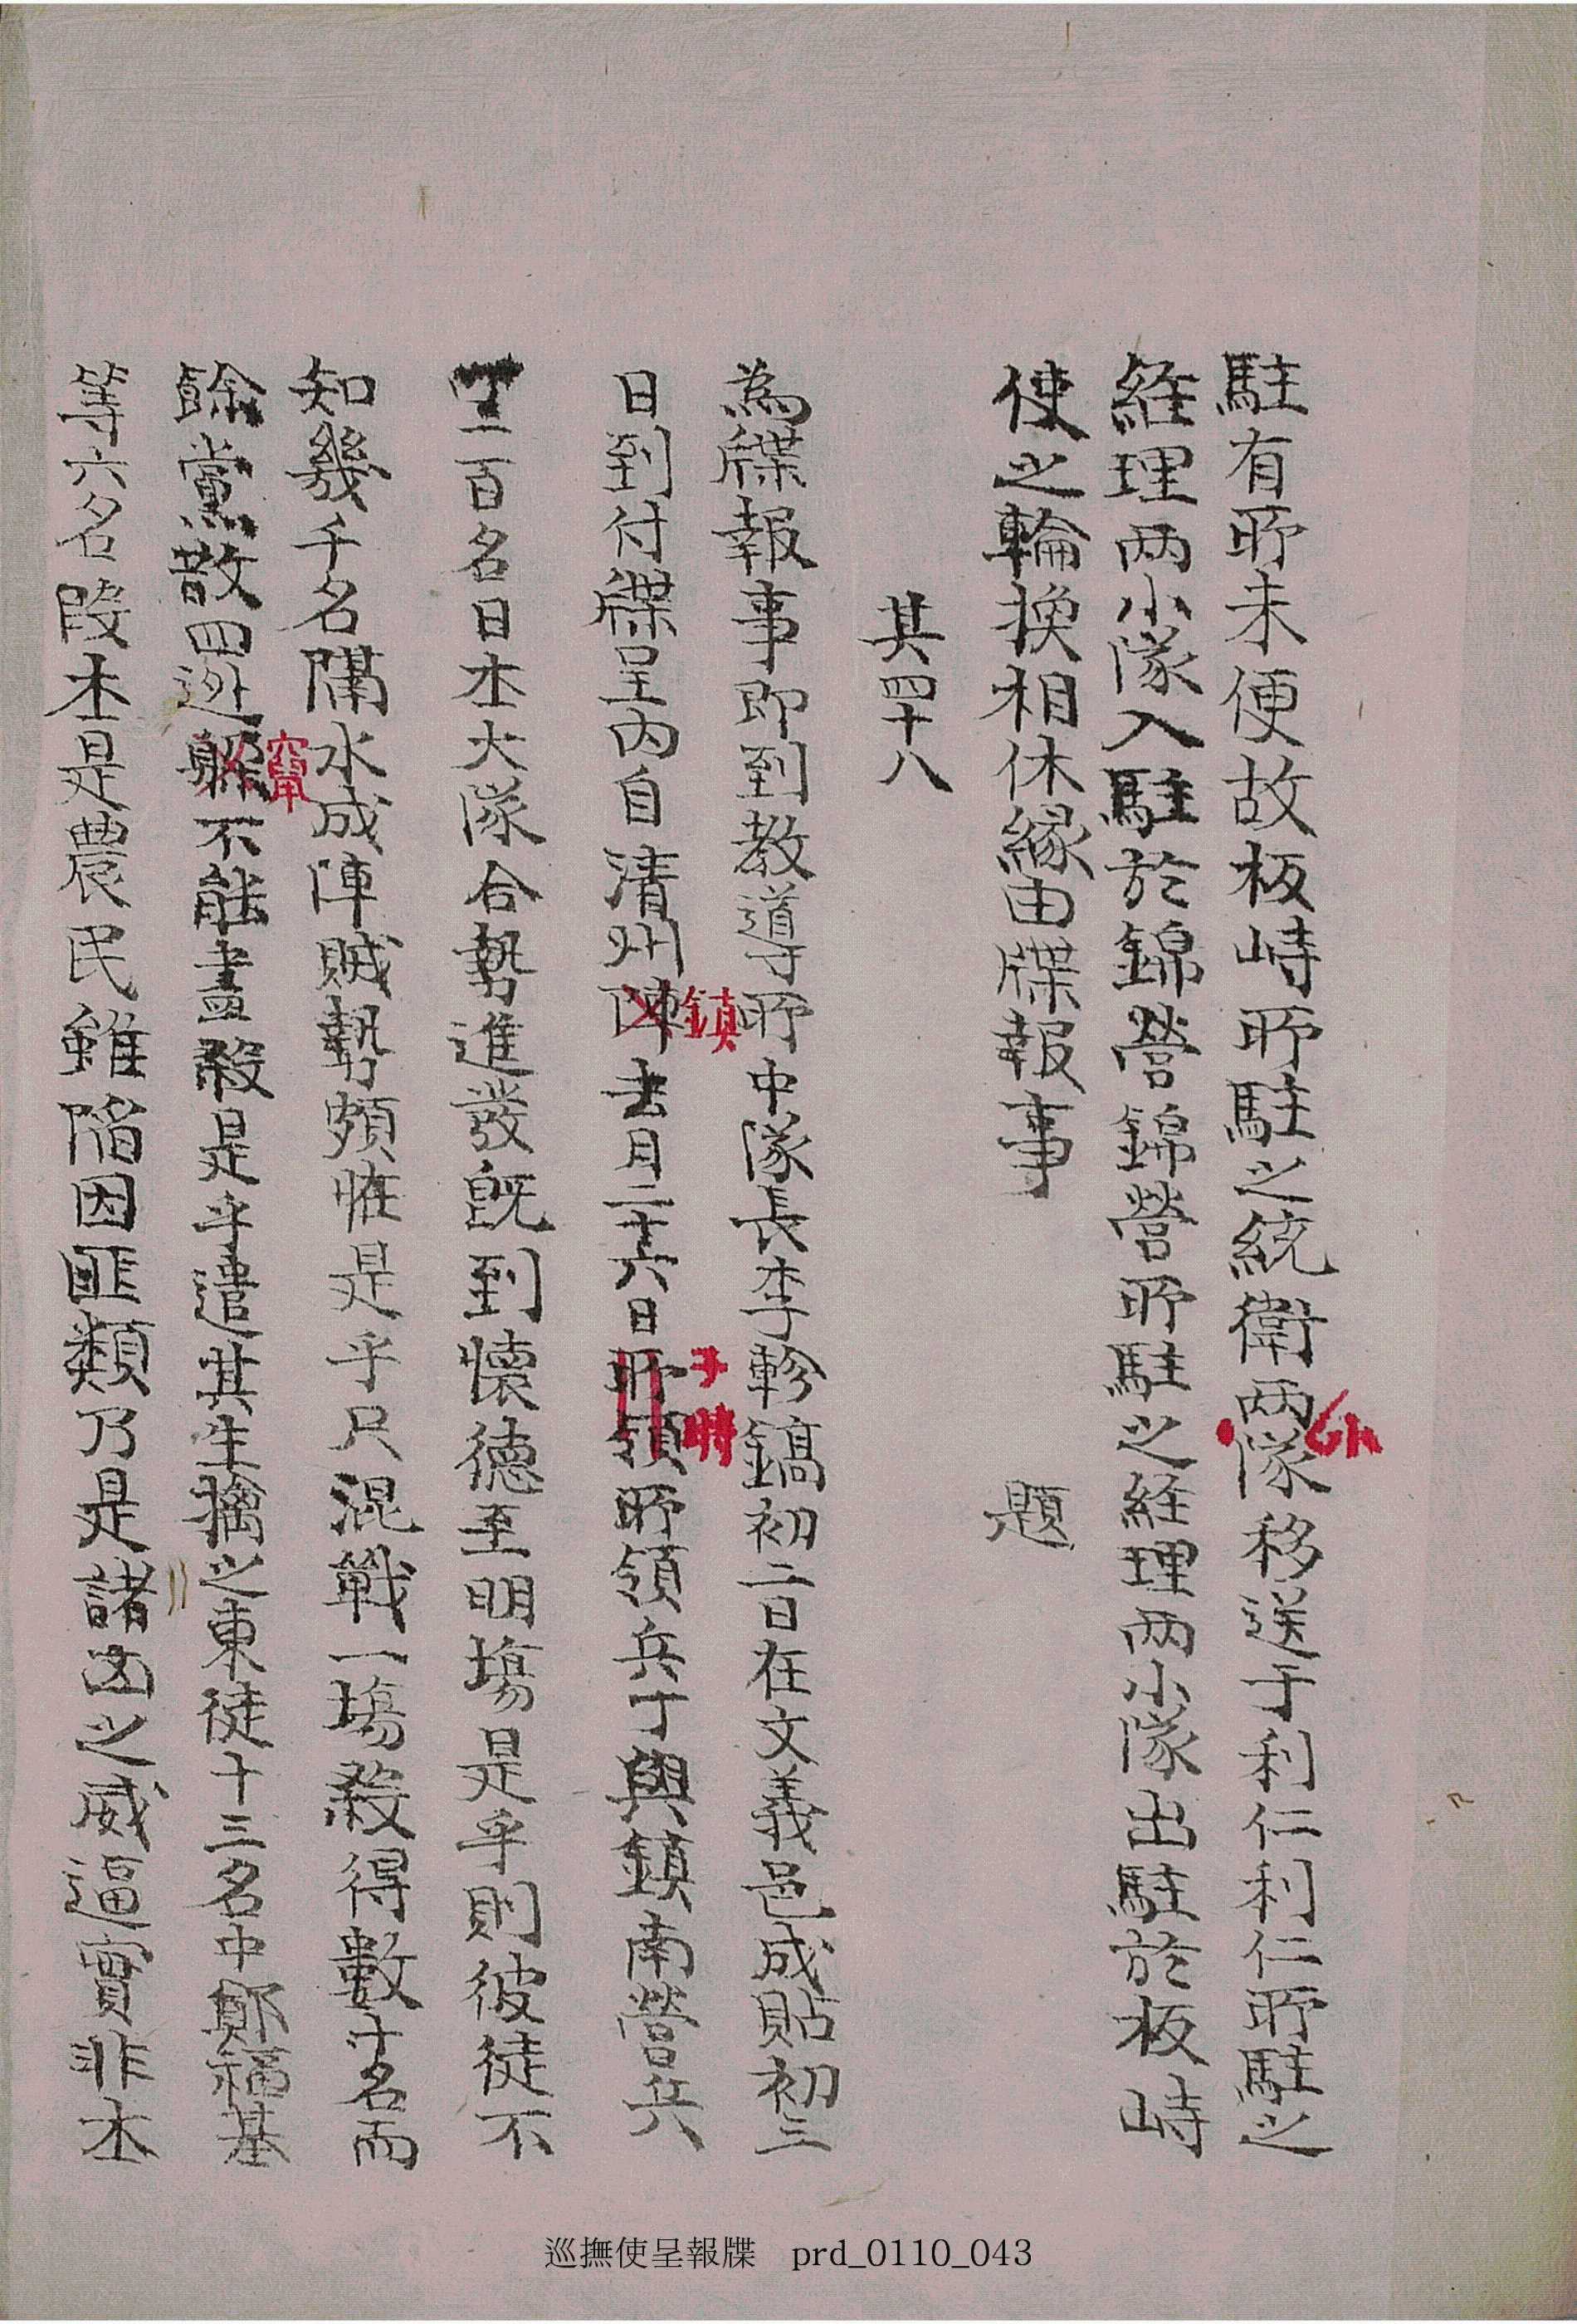 駐有所未便故板峙所駐之統衛兩小隊移送于利仁利仁所駐之
經理兩小隊入駐於錦營錦營所駐之経理兩小隊出駐於板峙
使之輪換相休緣由牒報事　題
其四十八
為牒報事即到教導所中隊長李軫鎬初二日在文義邑成貼初三
日到付牒呈內自清州陣鎮去月二十六日所領于時所領兵丁與鎮南營兵
一百名日本大隊合勢進發旣到懷德至明塲是乎則彼徒不
知幾千名隔水成陣賊勢頗恠是乎尺混戰一塲殺得數十名而
餘黨散四逃躱竄不能盡殺是乎遣其生擒之東徒十三名中鄭福基
等六名段本是農民雖陷因匪類乃是諸凶之威逼實非本
巡撫使呈報牒　prd_0110_043